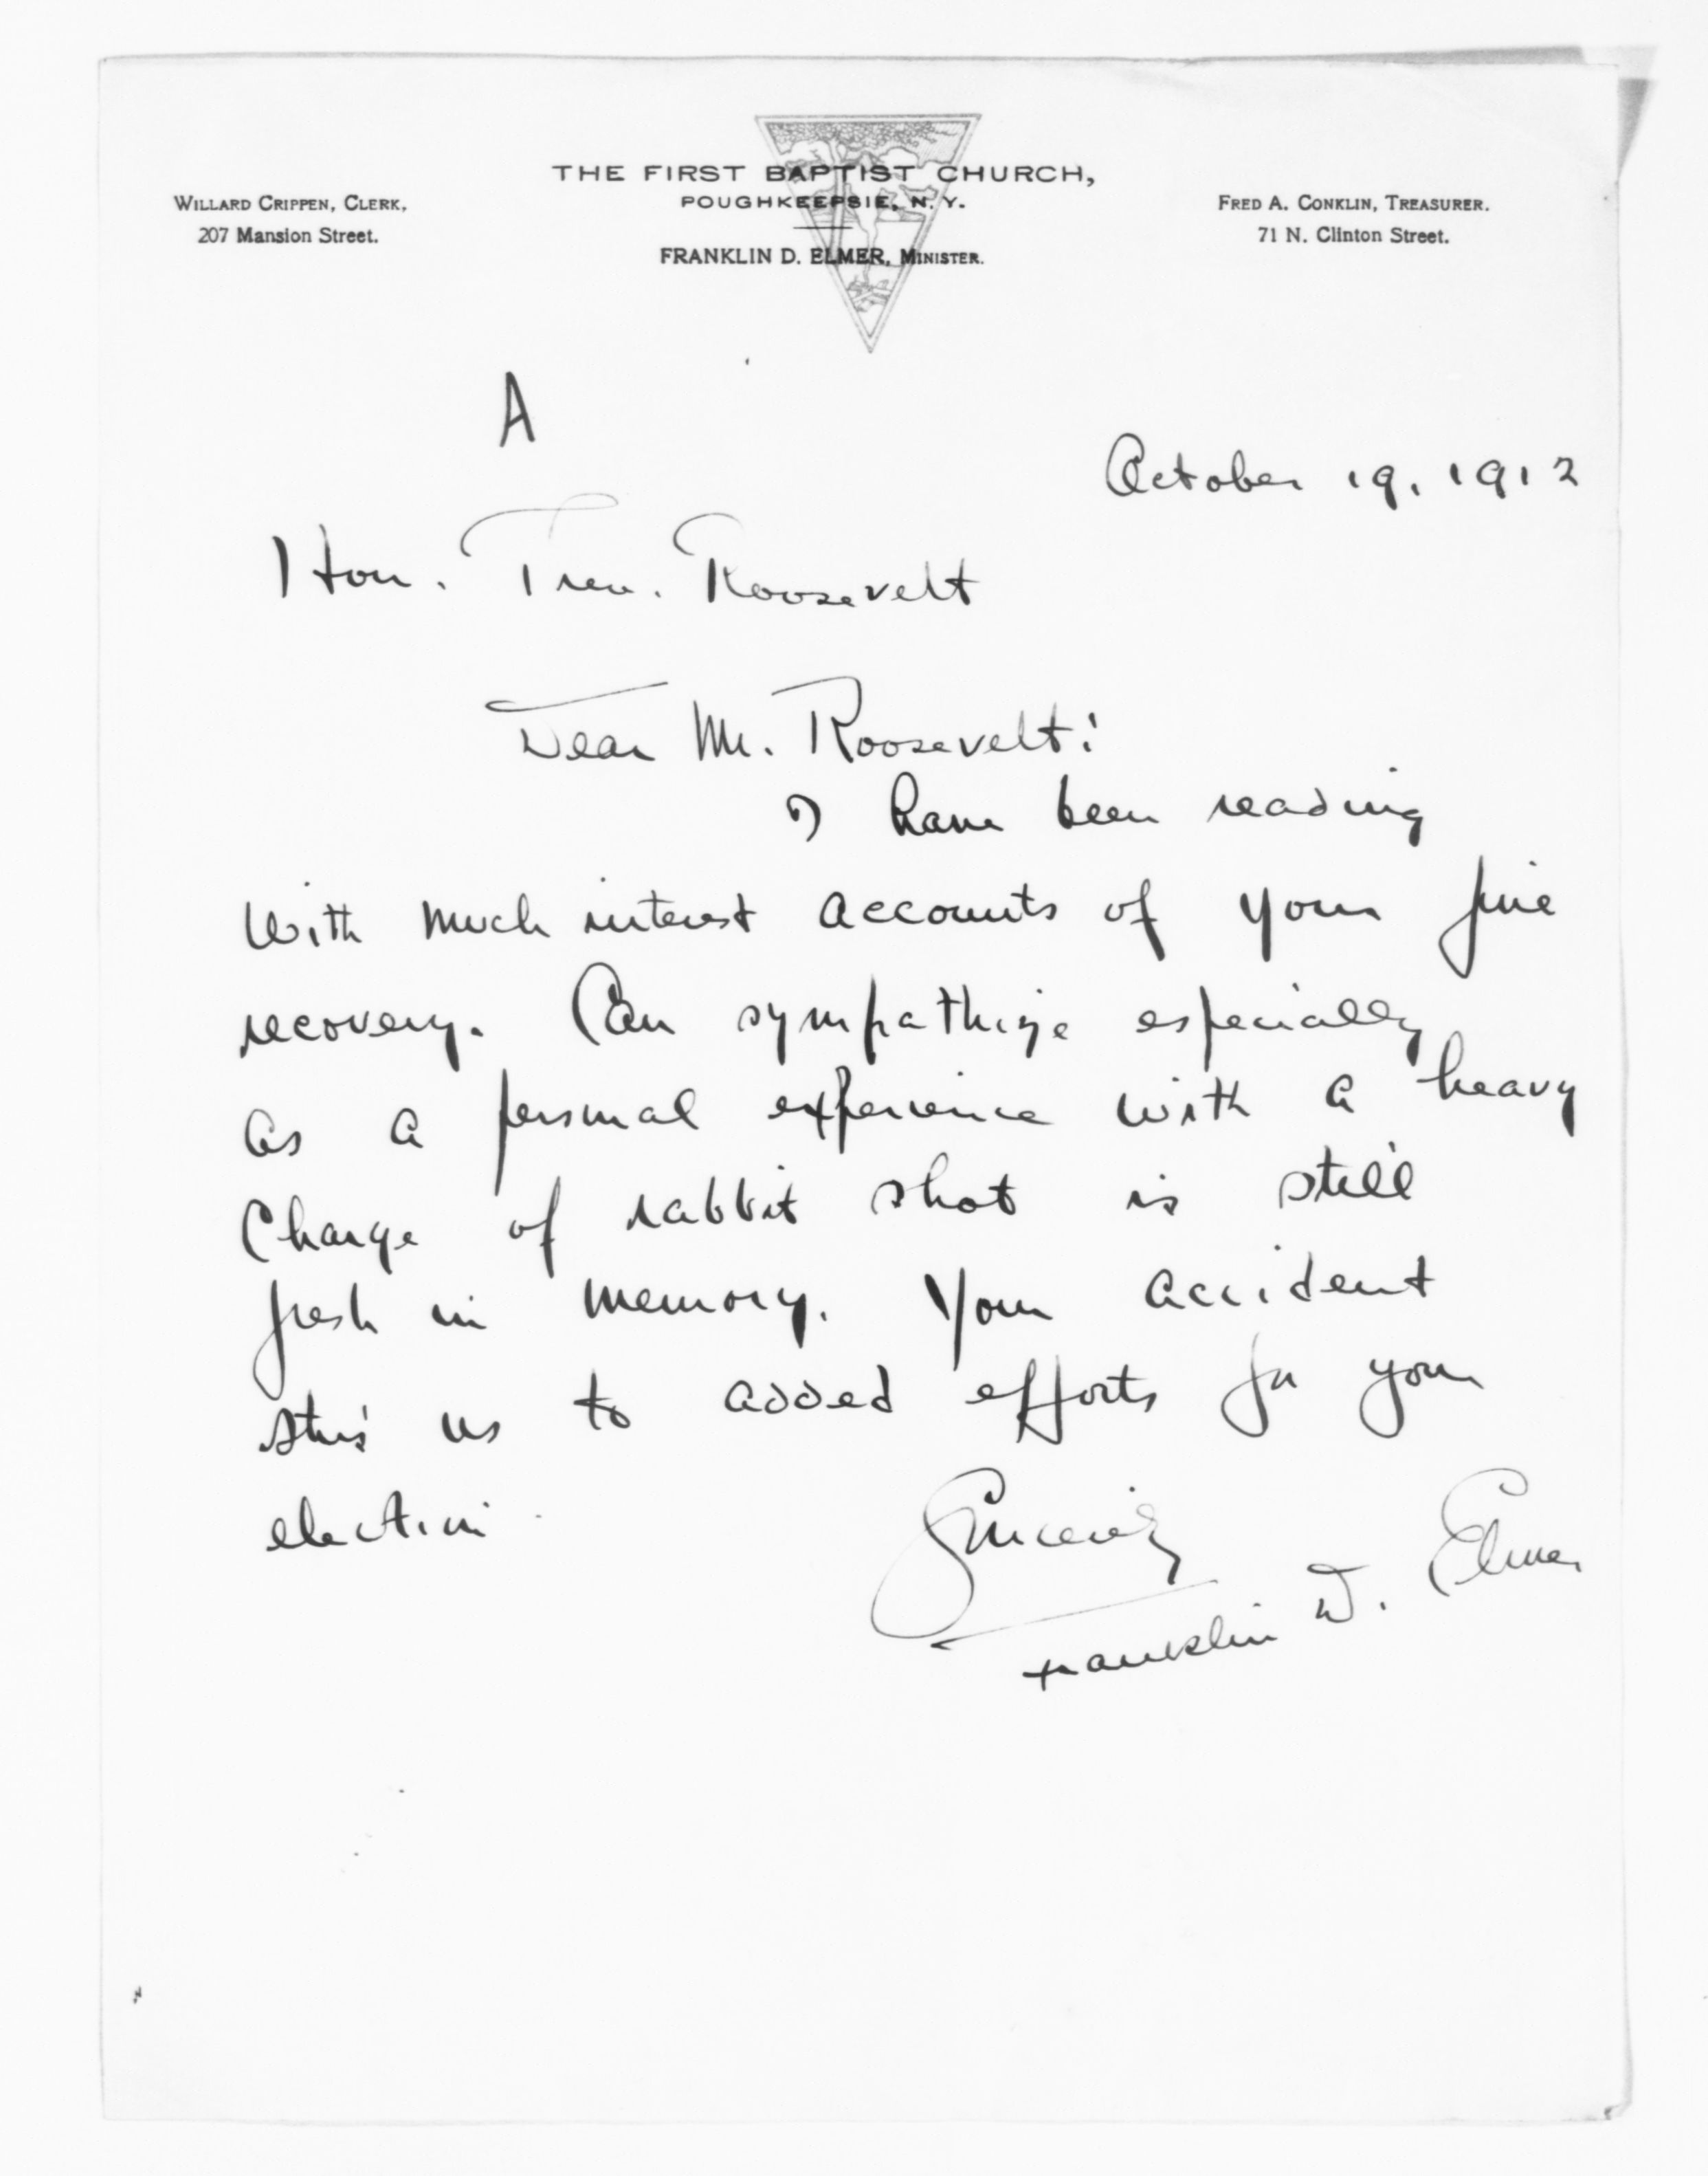 THE FIRST BAPTIST CHURCH,
POUGHKEEPSIE, N. Y.
FRANKLIN D. ELMER, MINISTER.
WILLARD CRIPPEN, CLERK,
207 Mansion Street.
FRED A. CONKLIN, TREASURER.
71 N. Clinton Street.
A
October 19, 1912
Hon. Theo. Roosevelt
Dear Mr. Roosevelt:
I have been reading
with much interest accounts of your fine
recovery. Can sympathize especially
as a personal experience with a heavy
charge of rabbit shot is still
fresh in memory. Your accident
stirs us to added efforts for your
election.
Sincerely
Franklin D. Elmer